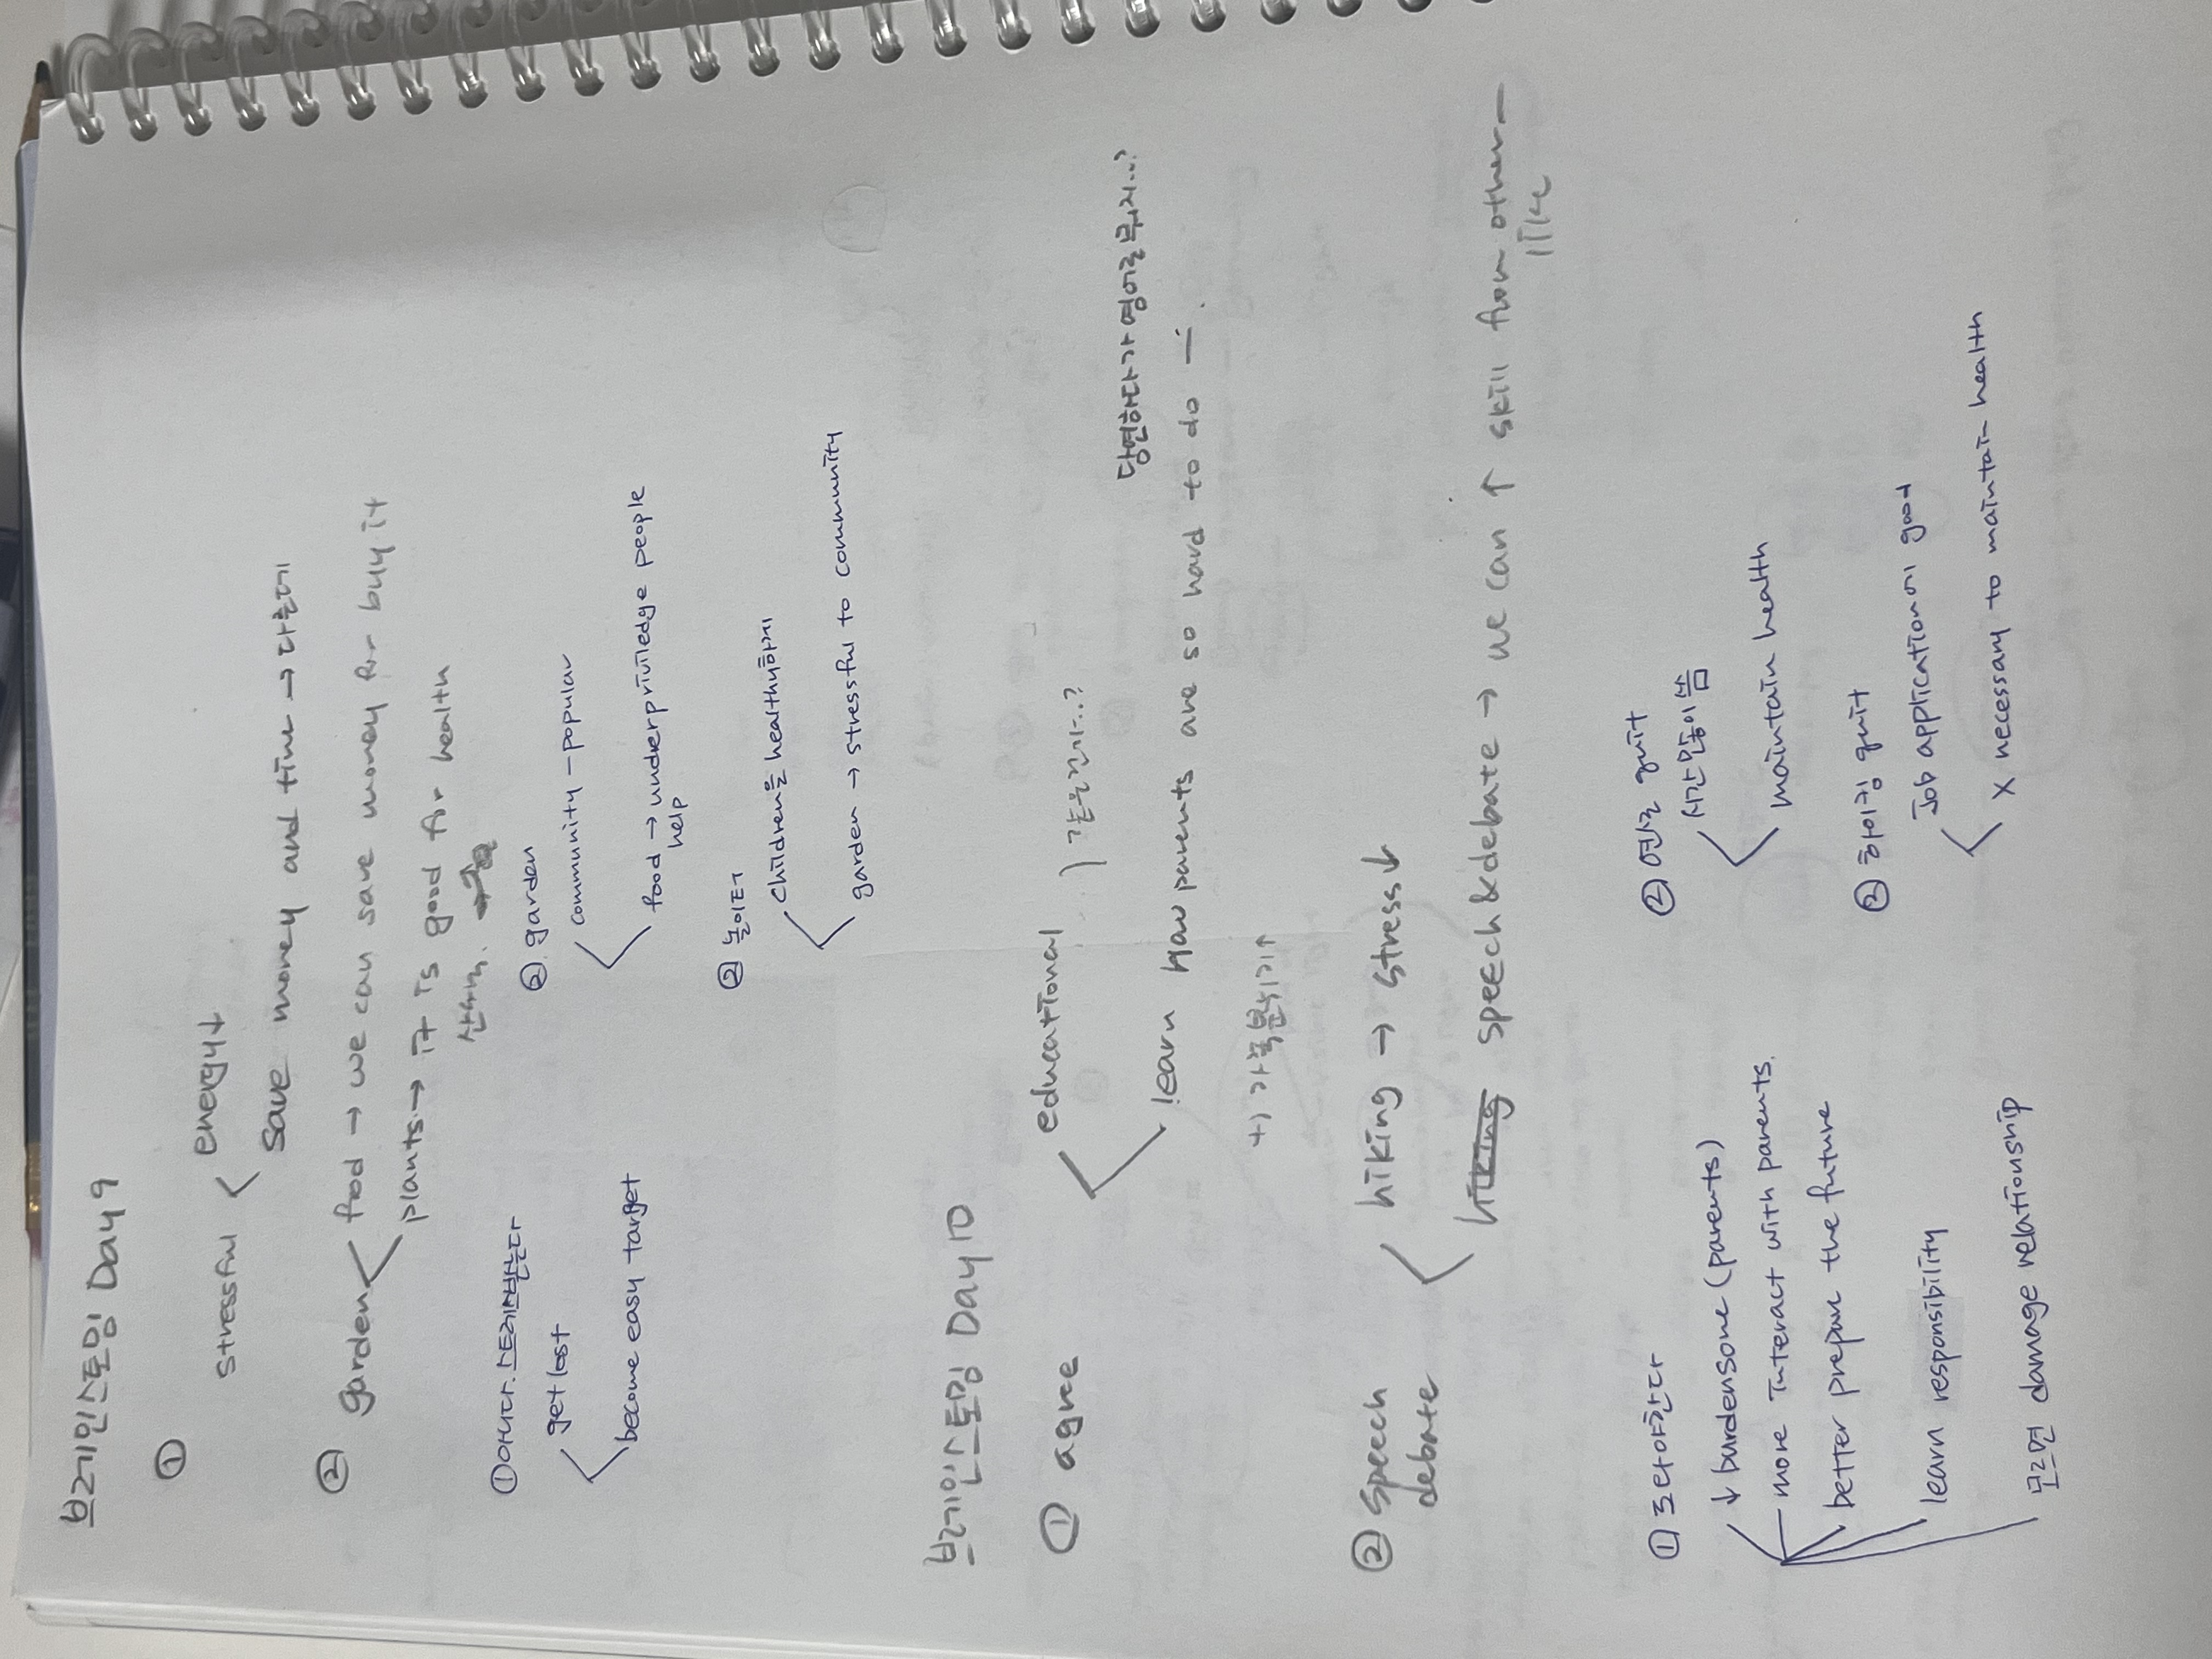 브레인스토밍 Day 9
①
stressful < energy↓
save money and time → 다른데
② garden < food → we can save money for buy it
plants → it is good for health
산소..
① 아니다. 스트레스받는다
get lost
become easy target
② garden
community - popular
food → underpriviledge people
help
② 놀이터
children을 healthy하게
garden → stressful to community
브레인스토밍 Day 10
① agree
educational
) 같은건가..?
당연하다가 영어로 뭐지..?
learn how parents are so hard to do —.
+) 가족분위기↑
② speech
debate
hiking → stress↓
hiking speech & debate → we can ↑ skill from other —
like
① 도와야한다
↓ burdensome (parents)
more interact with parents.
better prepare the future
learn responsibility
모르면 damage relationship
② quit
시간많이씀
maintain health
② 하이킹 quit
Job application에 good
X necessary to maintain health